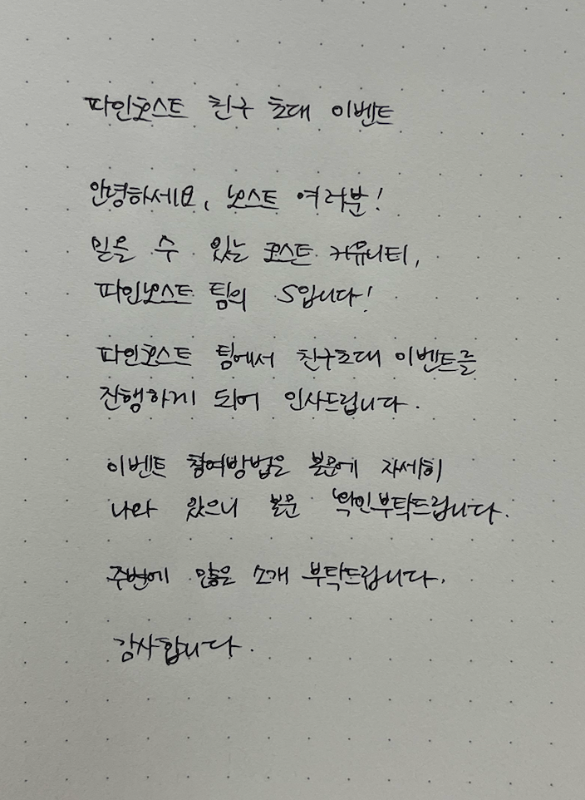 파인포스트 친구 초대 이벤트
안녕하세요, 포스트 여러분!
믿을 수 있는 포스트 커뮤니티,
파인포스트 팀의 S입니다!
파인포스트 팀에서 친구초대 이벤트를
진행하게 되어 인사드립니다.
이벤트 참여방법은 본문에 자세히
나와 있으니 본문 확인부탁드립니다.
주변에 많은 소개 부탁드립니다.
감사합니다.